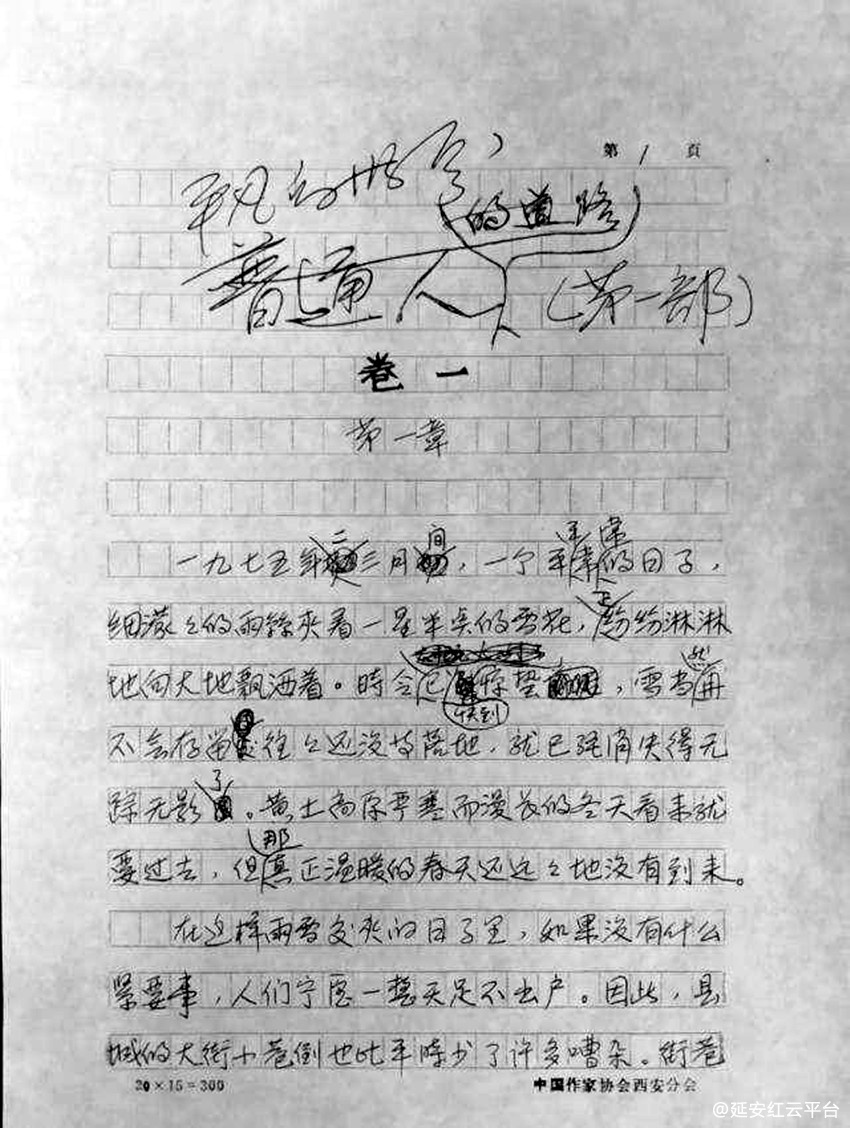 第 1 页
平凡的世界
(的道路)
普通人
(第一部)
卷一
第一章
一九七五年二三月间,一个平平常常的日子,
细濛々的雨丝夹着一星半点的雪花,正纷纷淋淋
地向大地飘洒着。时令已快到惊蛰,雪当然再
不会存留,往々还没等落地,就已经消失得无
踪无影了。黄土高原严寒而漫长的冬天看来就
要过去,但那真正温暖的春天还远々地没有到来。
在这样雨雪交夹的日子里,如果没有什么
紧要事,人们宁愿一整天足不出户。因此,县
城的大街小巷倒也比平时少了许多嘈杂。街巷
20×15=300
中国作家协会西安分会
@延安红云平台